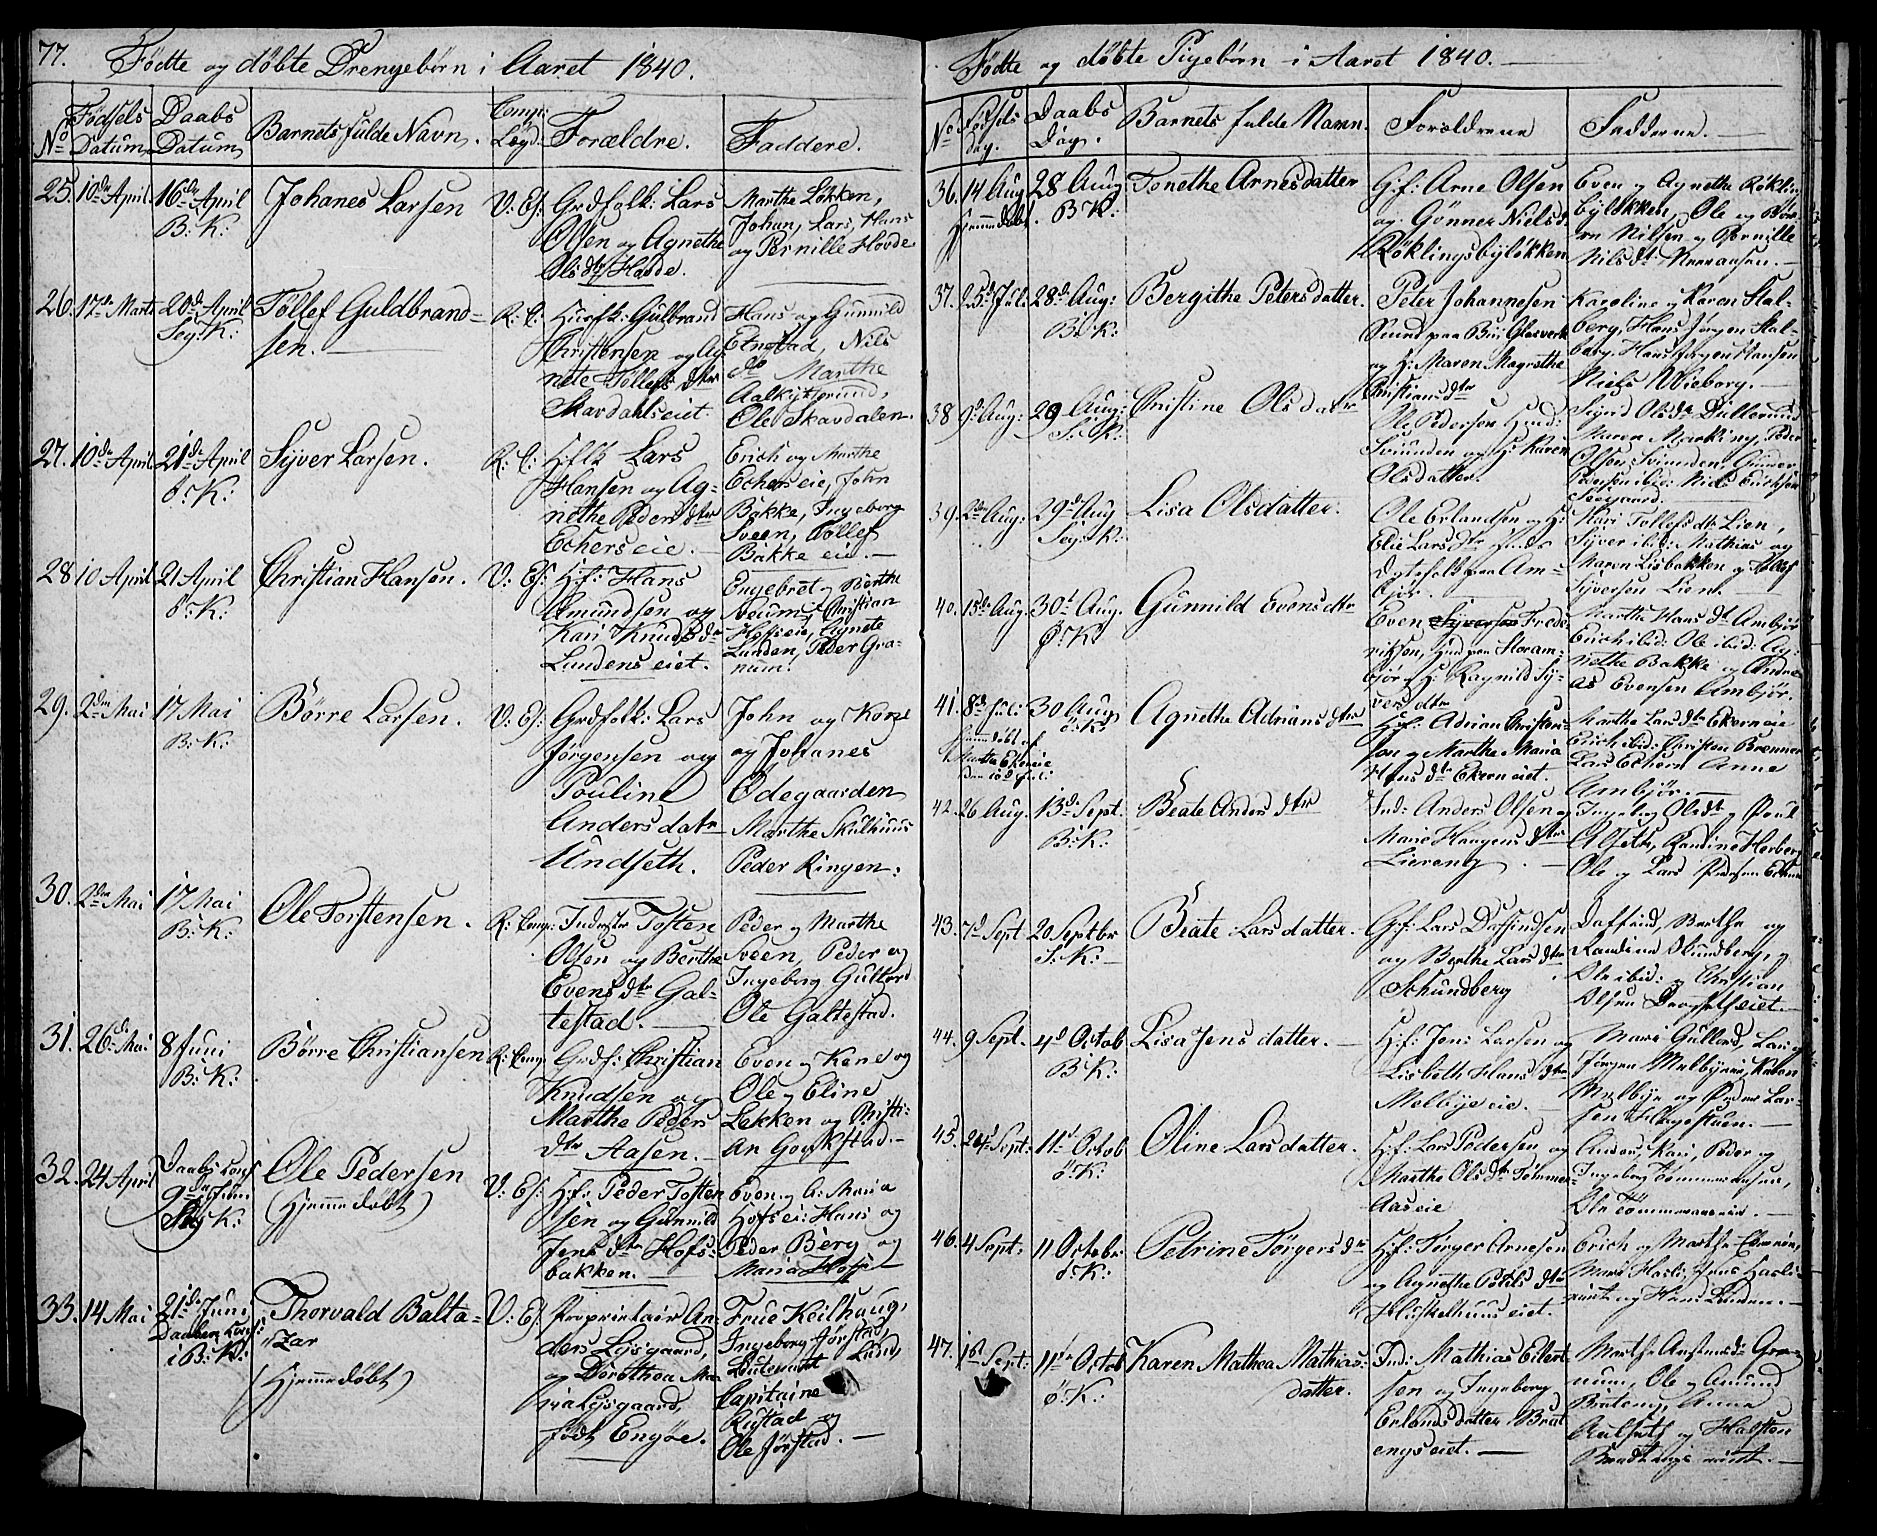 77.
Fødte og døbte Drengebørn i Aaret 1840.
No Fødsels Datum Daabs Datum Barnets fulde Navn. Comp: Lægd Forældre. Faddere.
25. 10de April 16de April B: K: Johanes Larsen V: Es: Grdfolk: Lars
Olsen og Agnethe
Olsdtr Hovde.
Marthe Løkken,
Johan, Lars, Hans
og Pernille Hovde
26. 17de Marts 20de April Seg: K: Tøllef Guldbrand=
sen. R: C: Husfk: Gulbrand
Christensen og Ag
nete Tøllefsdtr
Skardahlseiet
Hans og Gunnild
Etnstad, Nils
do Marthe
Ole Skavdalen.
27. 10de April 21de April ø: K: Syver Larsen. R: C: Hflk Lars
Hansen og Ag=
nethe Peders dtr
Echerseie.
Erich og Marthe
Echerseie, John
Bakke, Ingeborg
Sveen, Tollef
Bakke eie.
28 10 April 21 April ø: K: Christian Hansen. V: Es: H: f: Hans
Amundsen og
Kari Knudsdr
Lundenseiet.
Engebret og Berthe
Christian
Hofseie, Agnete
Lunden, Peder Gra=
num.
29. 2den Mai 17 Mai B: K: Børre Larsen. V: Es: Grdfolk: Lars
Jørgensen og
Pouline
Anders datr
Undseth.
John og Kone
og Johanes
Ødegaarden
Marthe Skulhuus
Peder Ringen:
30. 2den Mai 17 Mai B: K: Ole Torstensen. R: Comp: Inderster Tosten
Olsen og Berthe
Evensdtr Gal=
testad.
Peder og Marthe
Sveen, Peder og
Ingeborg Gullord
Ole Galtestad.
31. 26de Mai 8 Juni B: K: Børre Christiansen R: Comp Grdf: Christian
Knudsen og
Marthe Peders
dtr Aasen.
Even og Kone og
Ole og Eline
Løkken og Christi=
an
32. 24 April Daabs conf 9de Juni Seg K: Ole Pedersen
(Hjemmedøbt) V: Es: H: f: Peder Tosten
sen og Gunnild
Jens dtr Hofs=
bakken.
Even og A: Maria
Hofseie Hans og
Peder Berg og
Maria Hofseie
33. 14 Mai 21de Juni Daaben conf: i B: K: Thorvald Balta=
zar
(Hjemmedøbt) V: Es Proprietair An=
ders Lysgaard,
og Dorothea Ma=
ria Lysgaard,
født Engøe.
Frue Keilhaug,
Ingeborg Jørstad,
Leutenant Lund,
Capitaine
Rustad og
Ole Jørstad.
Fødte og døbte Pigebørn i Aaret 1840.
No Fødsels dag. Daabs Dag. Barnets fulde Navn. Forældrene Faddrene.
36. 14 Aug Hjemmedøbt. 28 Aug B K: Tonethe Arnesdatter G: f: Arne Olsen
og Gønner Nielsd:
Røklingsbyløkken
Even og Agnethe Røklin
byløkken, Ole og
Nilsen og Pernille
Nilsdt:
37. 25de Juli 28de Aug: B: K: Bergithe Petersdatter. Peter Johannesen
Svend paa Biri Glasverk
og H: Maren Magrethe
Christiansdtr
Karoline og Karen Stal=
berg, Hans Jørgen Stal=
berg, Hans Jørgen Hansen
Niels Wieborg.
38 9de Aug: 29 Aug: S: K: Christine Olsdatr Ole Pedersen Huusm:
Svinnden og H: Karen
Olsdatter.
Sigrid Olsdtr
Maren Peder
39. 2den Aug: 29de Aug Seg: K: Lisa Olsdatter. Ole Erlandsen og H:
Elie Larsdtr
paa Am=
bjør.
Kari Tollefsdtr Lien,
Syver ibid: Mathias og
Maren Lisbakken og Tollef
Syversen Lien.
40. 15de Aug. 30te Aug. Ø: K: Gunnild Evensdtr Even Syversen Frede
riksen,
bjør H: Ragnild Sy=
versdtr
Marthe Hansdtr Ambjør
Erich ibid: Ole ibid: Ag=
nethe Bakke og Andre=
as Evensen Ambjør.
41. 8de Juli hjemmedøbt af Marthe Ekerneie den 10de Juli 30 Aug. ø: K: Agnethe Adriansdtr H: f: Adrian Christen=
sen og Marthe Maria
Hansdtr Ekerneiet.
Marthe Larsdtr Ekerneie
Erich ibid: Christen
Lars Echern Anne
Ambjør.
42. 26 Aug. 13de Sept. B: K: Beate Andersdtr Ind: Anders Olsen og
Marie Haagensdtr
Liereng
Ingeborg Olsdtr og Poul
Alseth, Randine Herberg
Ole og Lars Pedersen
43. 7de Sept 20 Septbr S: K: Beate Larsdatter. G: f: Lars Daffindsen
og Berthe Larsdtr
Schundberg
Daffind, Berthe og
Randine Skundberg, og
Ole ibid: og Christian
Olsen
44. 9 Sept. 4de Octob B: K: Lisa Jensdatter. H: f: Jens Larsen og
Lisbeth Hansdtr
Melbyeeie.
Mari Gullord, Lars og
Jørgen Melbyeeie, Karen
Melbye og Peder Lar=
sen
45. 24de Sept: 11te Octob ø: K: Oline Larsdatter. H: f: Lars Pedersen og
Marthe Olsdtr Tømmer=
aaseie
Anders, Kari, Peder og
Ingeborg Tømmeraasen,
Ole Tømmeraaseie.
46. 4 Sept: 11 Octobr: ø: K: Petrine Tørgersdr H: f: Tørger Arnesen
og Agnethe Povelsdtr
Huskelhuuseiet.
Erich og Marthe
Mari Hasli, Jens Hasli=
eiet og Hans Lunden.
47. 1st Sept: 11te Octob ø: K: Karen Mathea Mathias=
datter. Ind: Mathias Eilert
sen og Ingeborg
Erlandsdatter Brat
engseiet.
Marthe Gra=
num, Ole og Amund
Brateng, Anne
og Halsten